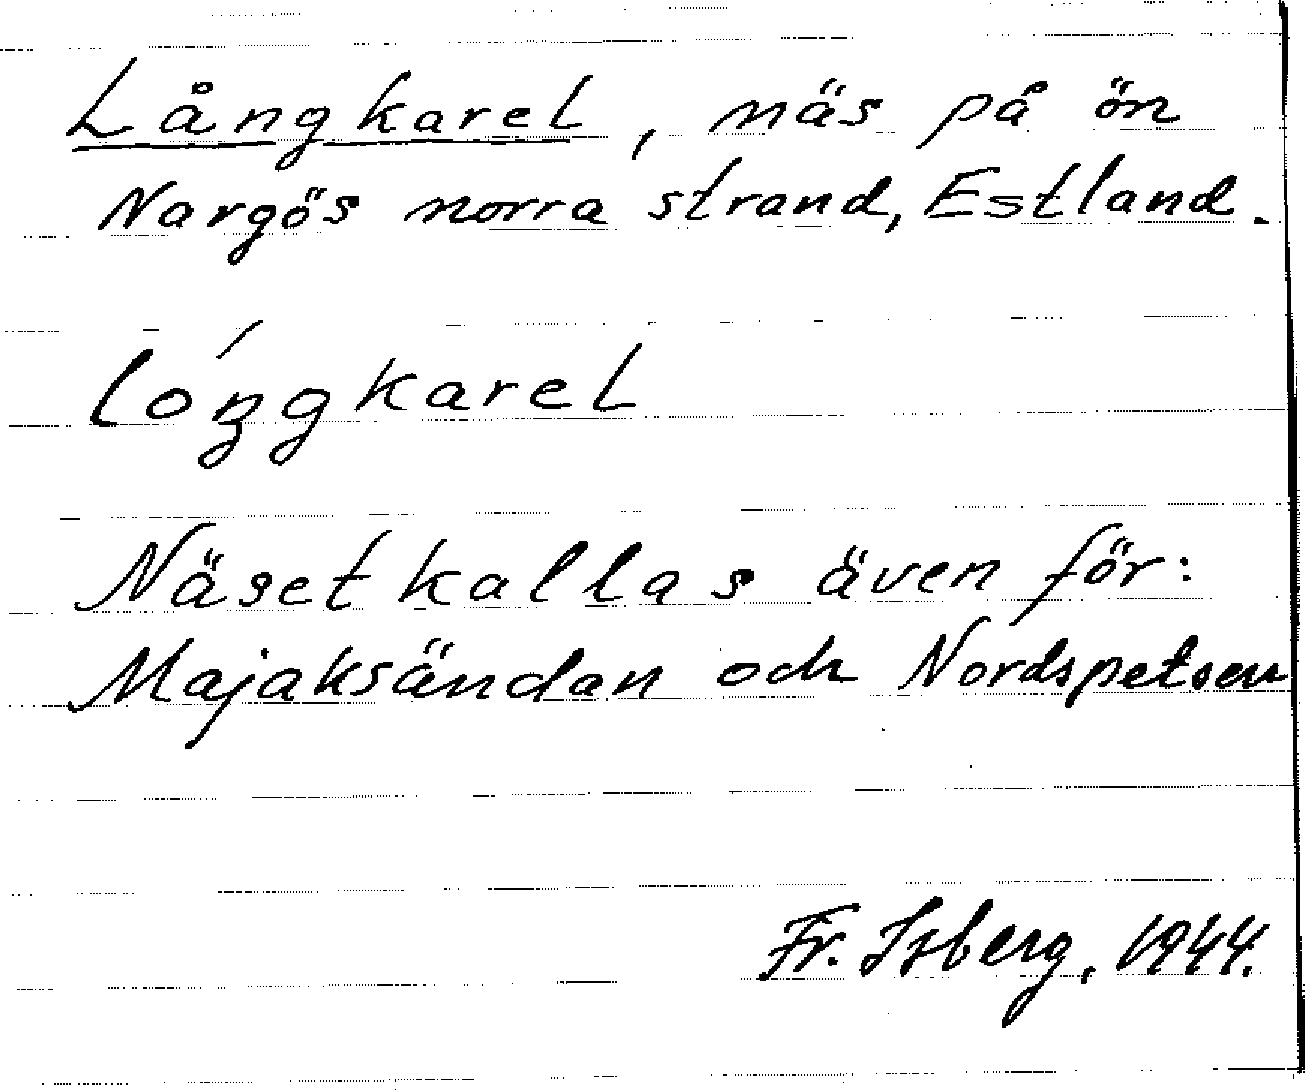 Långkarel, näs på ön
Nargös norra strand, Estland.
lóŋgkarel
Näset kallas även för:
Majaksändan och Nordspetsen
Fr. Isberg, 1944.